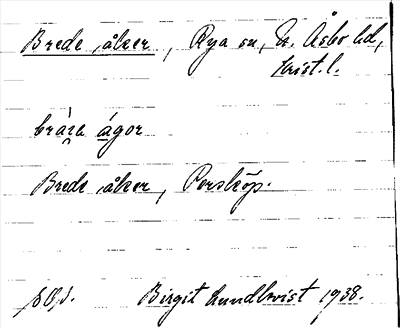 Brede åker, Rya sn, N. Åsbo hd,
Krist. l.
bráʒa ágor
Brede åker, Porsköp.
Birgit Lundkvist 1938.